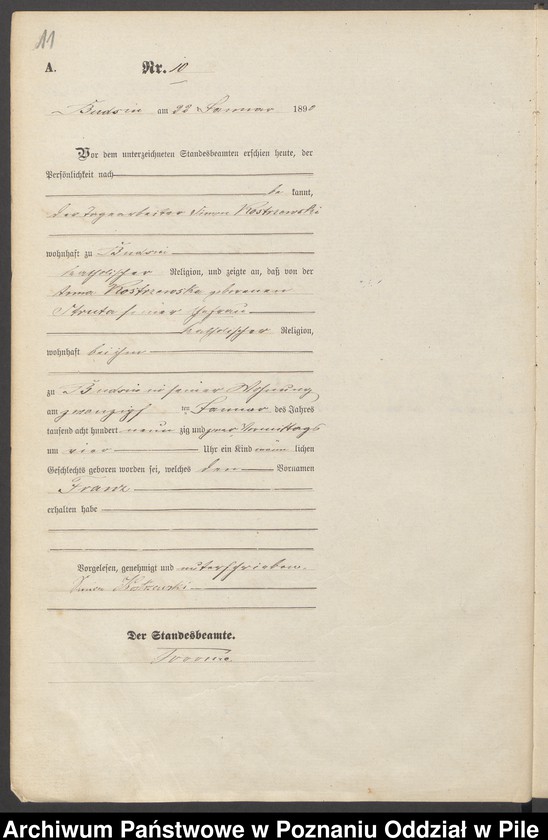 11
A.
Nr. 10
am 22 Januar 1890
Vor dem unterzeichneten Standesbeamten erschien heute, der
Persönlichkeit nach
be kannt,
der Tagearbeiter Simon Kostrzewski
wohnhaft zu
katholischer Religion, und zeigte an, daß von der
Anna Kostrzewska geborenen
Struta seiner Ehefrau
katholischer Religion,
wohnhaft bei ihm
zu in seiner Wohnung
am zwanzigs ten Januar des Jahres
tausend acht hundert neun zig und zwar Vormittags
um vier Uhr ein Kind männ lichen
Geschlechts geboren worden sei, welches den Vornamen
Franz
erhalten habe
Vorgelesen, genehmigt und unterschrieben.
Der Standesbeamte.
Archiwum Państwowe w Poznaniu Oddział w Pile